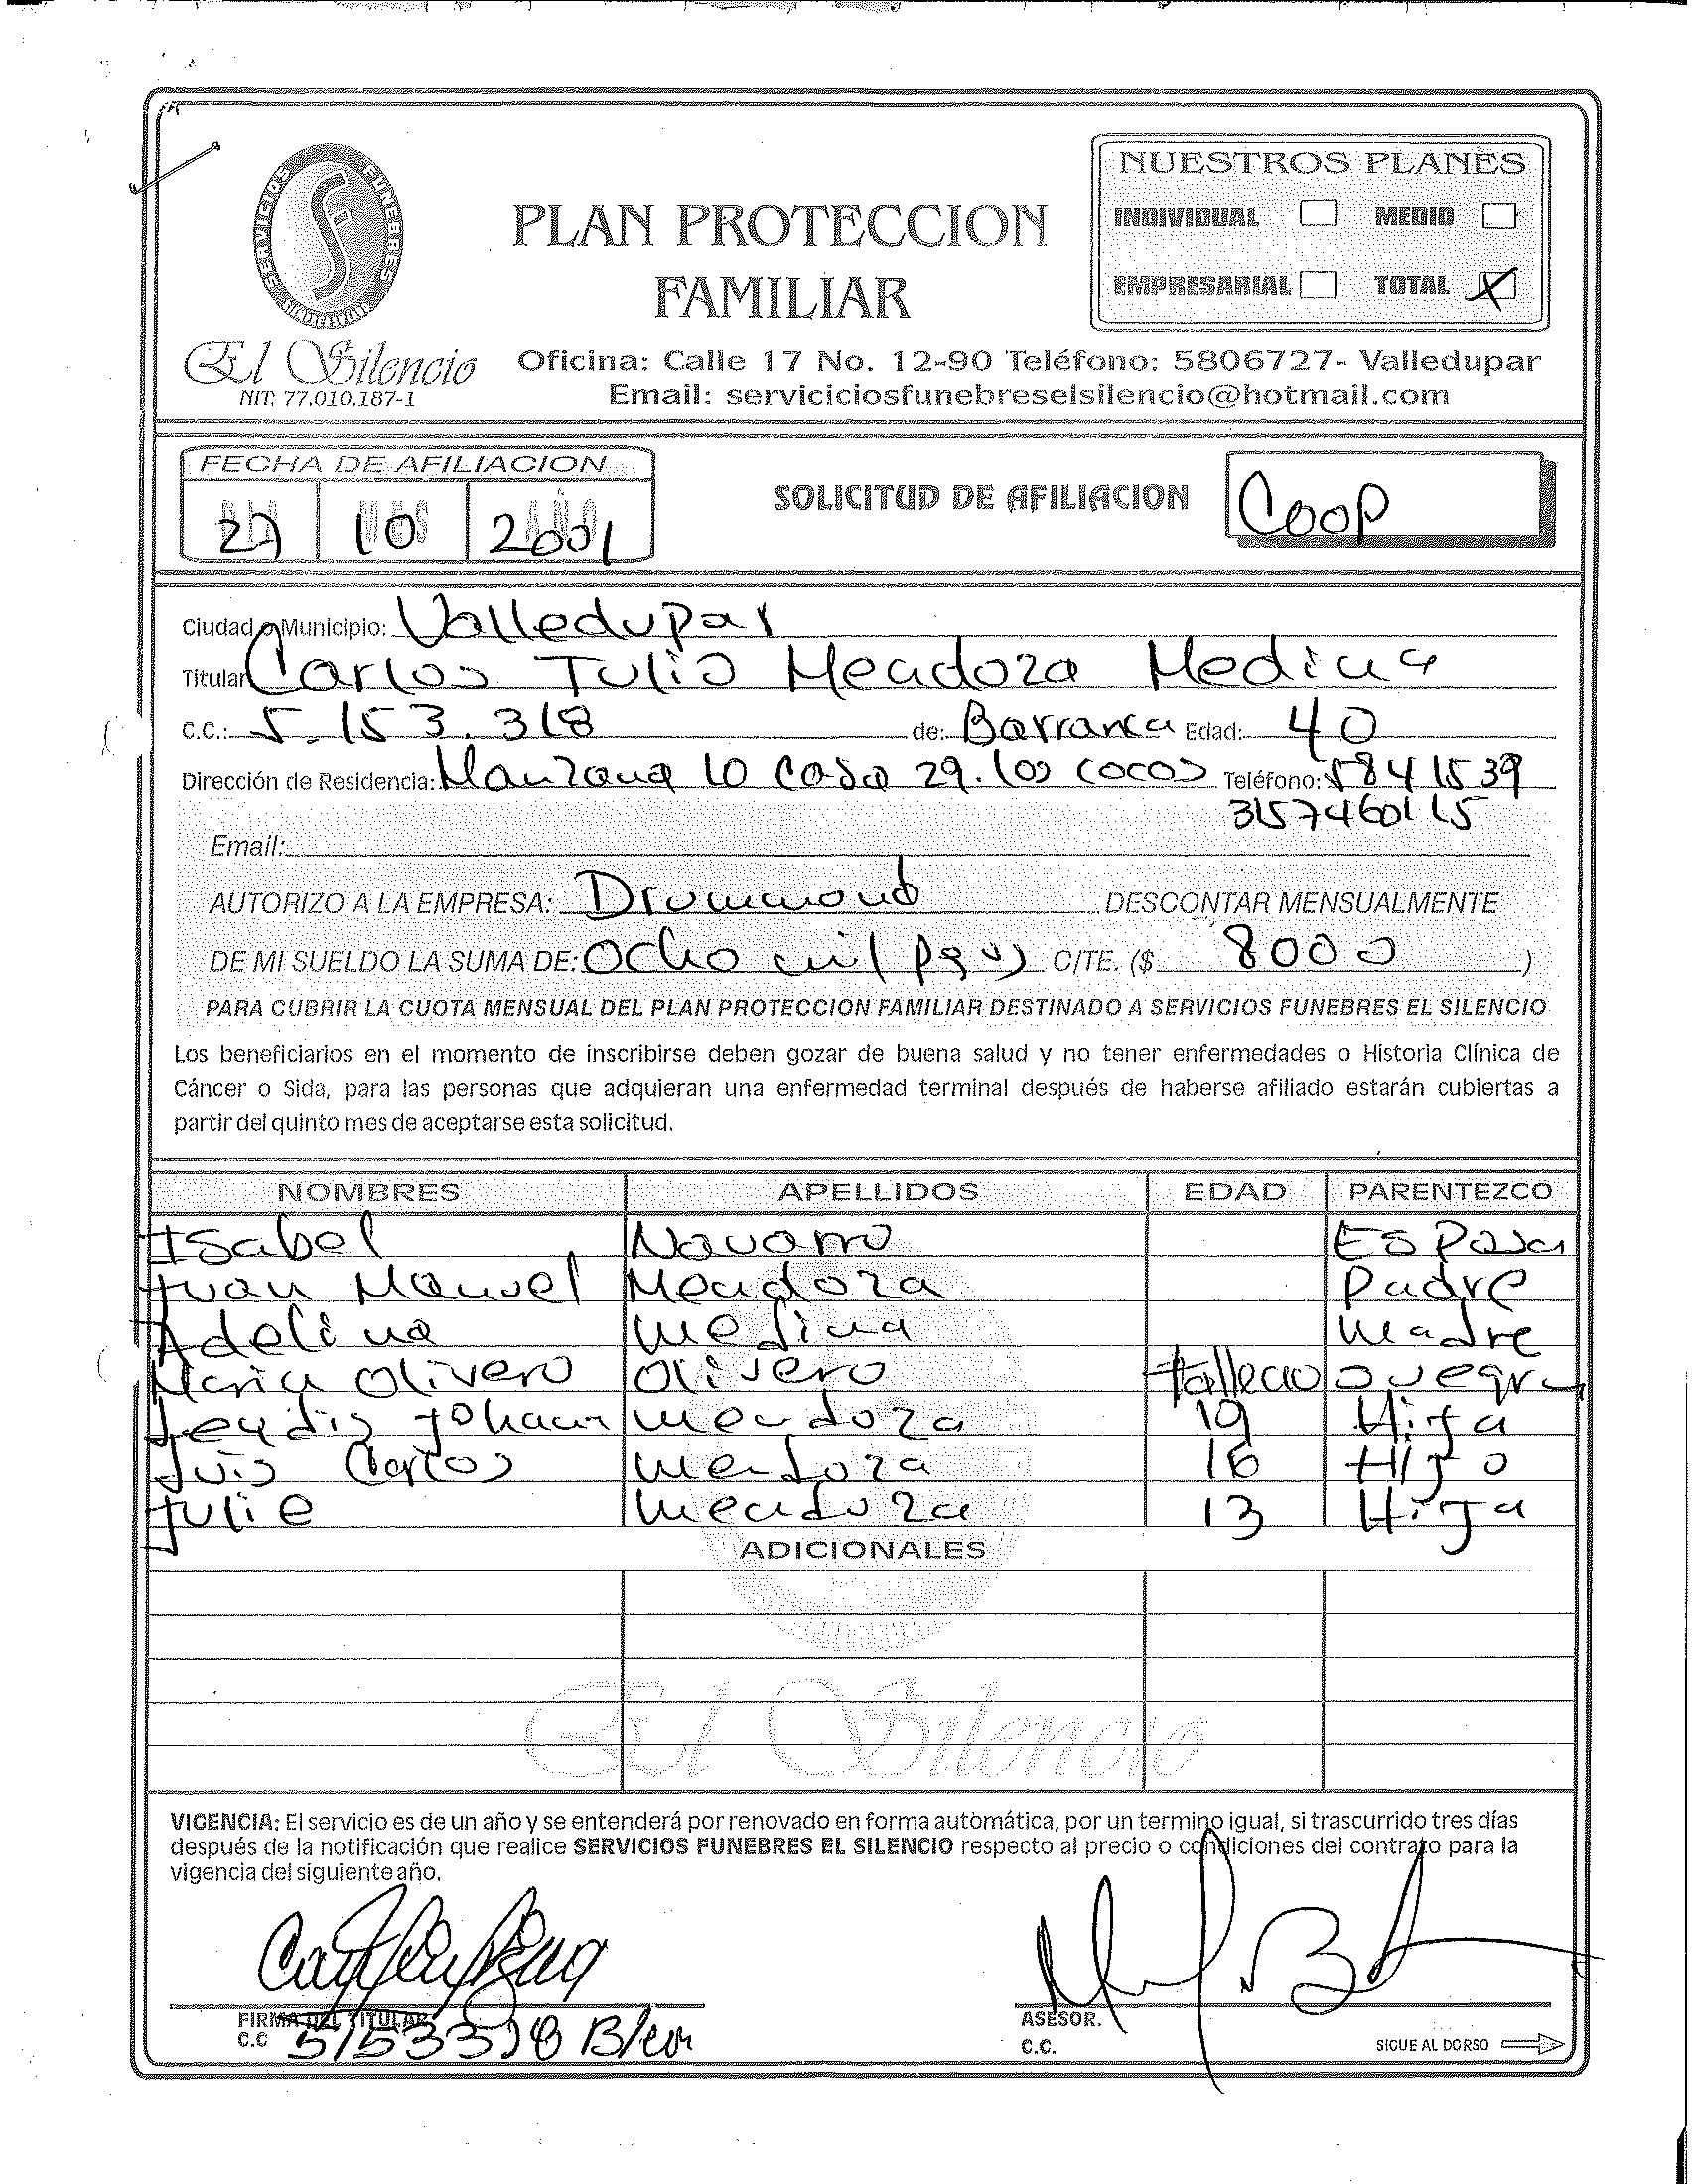 NUESTROS PLANES
INDIVIDUAL MEDIO
EMPRESARIAL TOTAL X
SERVICIOS FUNEBRES
PLAN PROTECCION
FAMILIAR
El Silencio
NIT: 77.010.187-1
Oficina: Calle 17 No. 12-90 Teléfono: 5806727- Valledupar
Email: serviciciosfunebreselsilencio@hotmail.com
FECHA DE AFILIACION
DIA MES AÑO
27 10 2001
SOLICITUD DE AFILIACION
Coop
Ciudad o Municipio: Valledupar
Titular Carlos Tulio Mendoza Medina
C.C.: 5.153.318 de: Barranca Edad: 40
Dirección de Residencia: Manzana 10 Casa 29. los cocos Teléfono: 5841539
3157460115
Email:
AUTORIZO A LA EMPRESA: Drummond DESCONTAR MENSUALMENTE
DE MI SUELDO LA SUMA DE: Ocho mil C/TE. ($ 8000 )
PARA CUBRIR LA CUOTA MENSUAL DEL PLAN PROTECCION FAMILIAR DESTINADO A SERVICIOS FUNEBRES EL SILENCIO
Los beneficiarios en el momento de inscribirse deben gozar de buena salud y no tener enfermedades o Historia Clínica de
Cáncer o Sida, para las personas que adquieran una enfermedad terminal después de haberse afiliado estarán cubiertas a
partir del quinto mes de aceptarse esta solicitud.
NOMBRES APELLIDOS EDAD PARENTEZCO
Isabel Navarro Esposa
Juan Manuel Mendoza Padre
Adelina Medina Madre
Maria Olivero Olivero fallecio suegra
Leydis Johana Mendoza 19 Hija
Luis Carlos Mendoza 16 Hijo
Julie Mendoza 13 Hija
ADICIONALES
El Silencio
VIGENCIA: El servicio es de un año y se entenderá por renovado en forma automática, por un termino igual, si trascurrido tres días
después de la notificación que realice SERVICIOS FUNEBRES EL SILENCIO respecto al precio o condiciones del contrato para la
vigencia del siguiente año.
FIRMA DEL TITULAR
C.C 5153318 B/ca
ASESOR.
C.C.
SIGUE AL DORSO